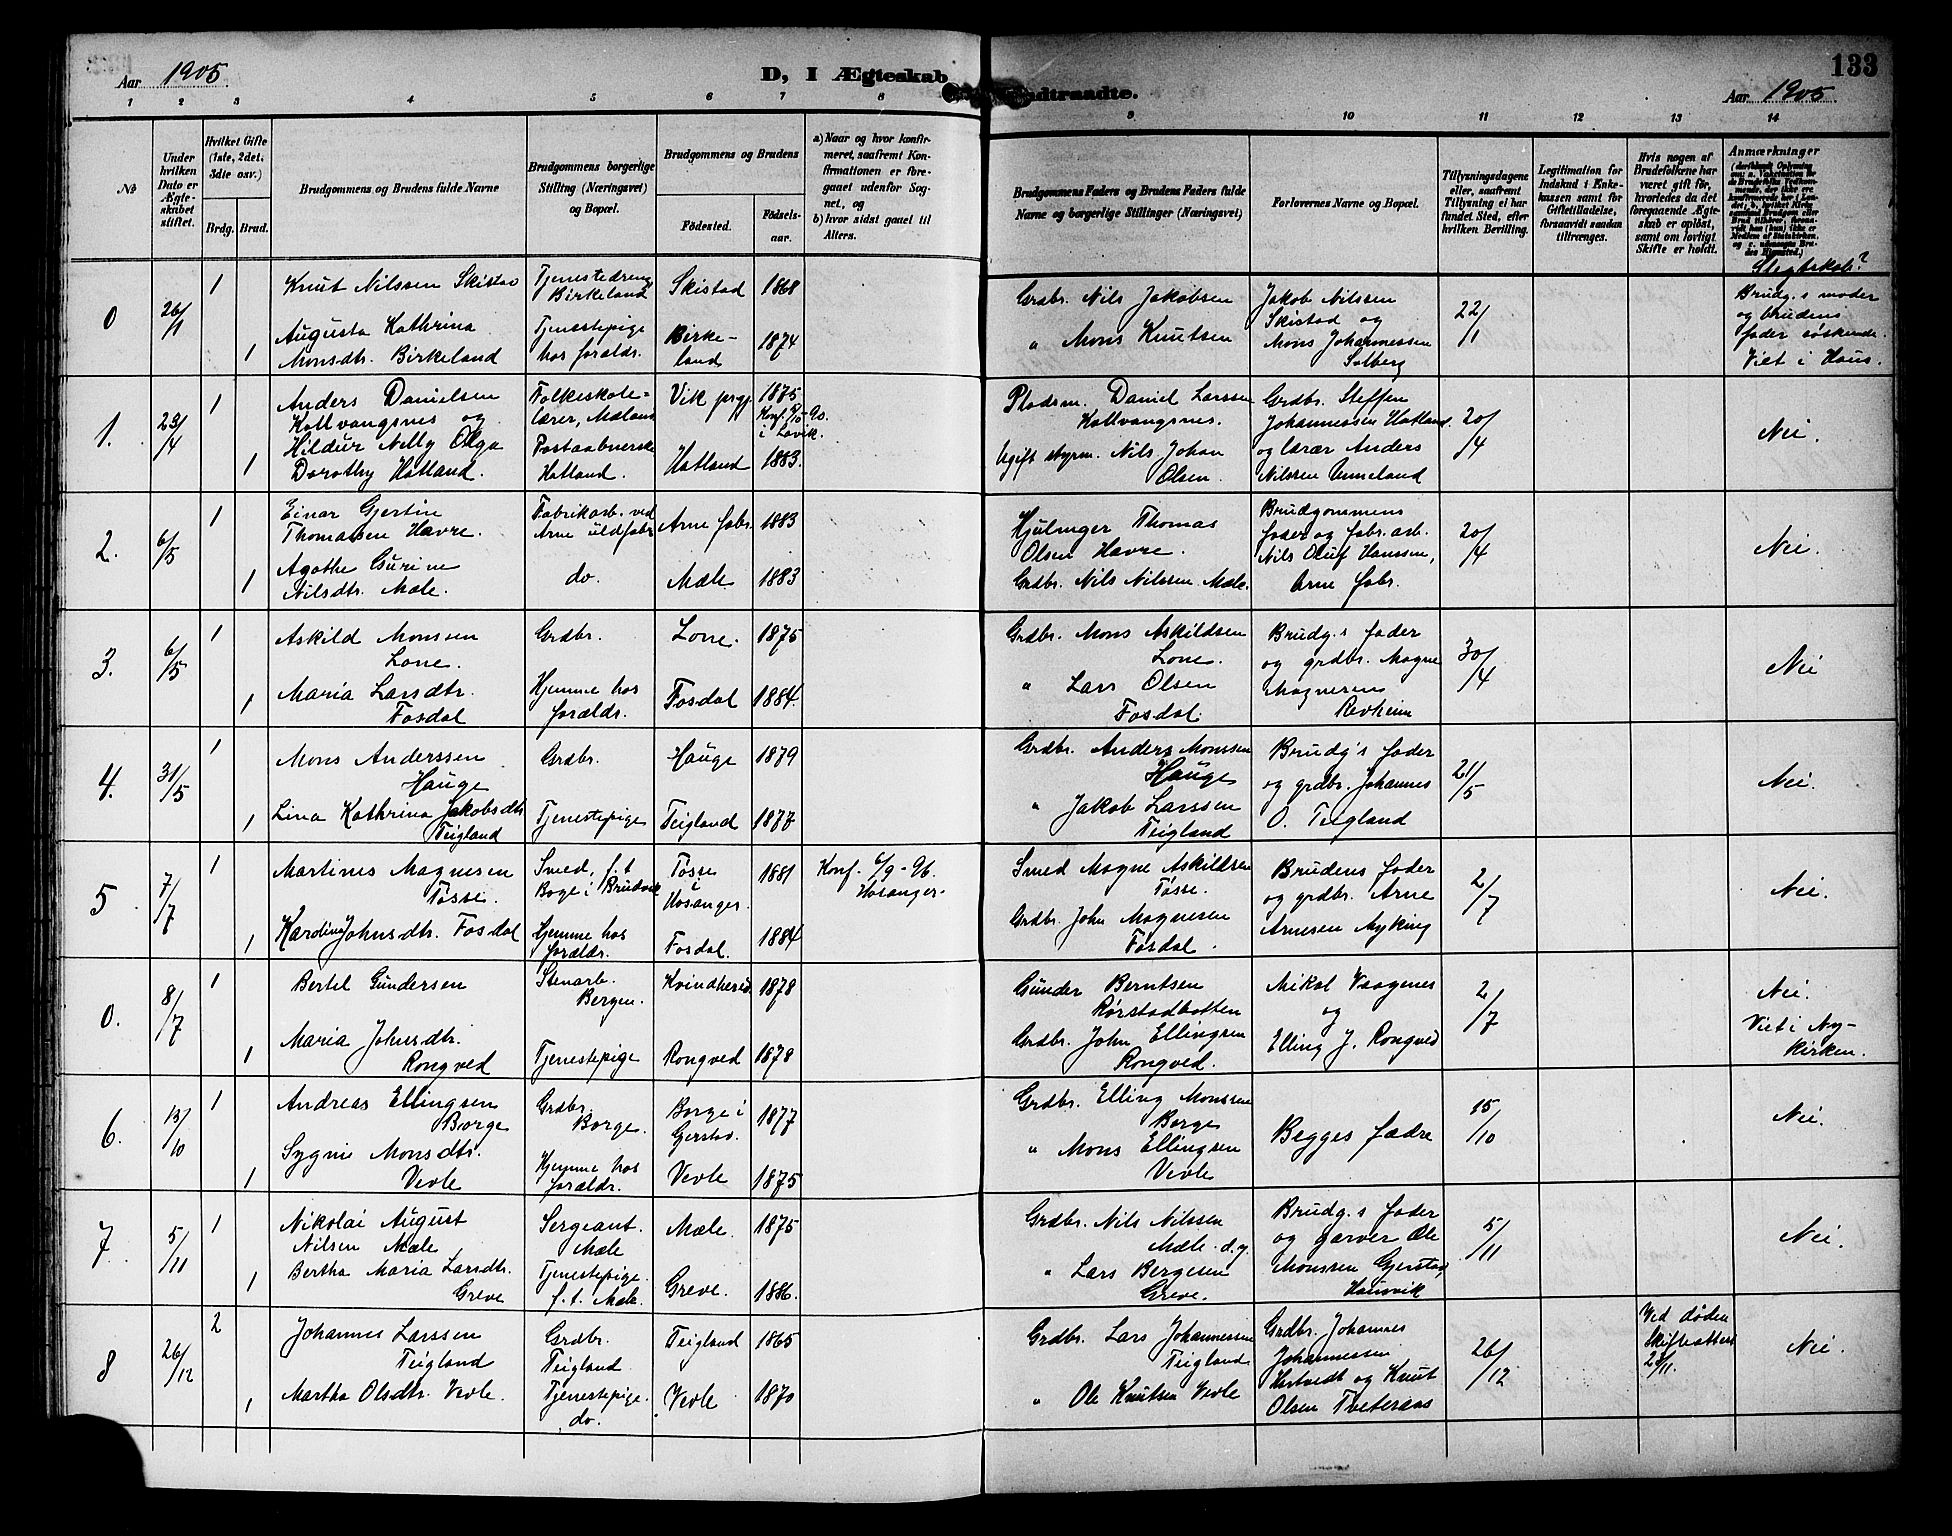 133
Aar 1905
D, I Ægteskab
Indtraadte.
Aar 1905.
1 2 3 4 5 6 7 8 9 10 11 12 13 14
No
Under hvilken Dato er Ægteskabet stiftet.
Hvilket Gifte (1ste, 2det, 3die osv.)
Brdg. Brud.
Brudgommens og Brudens fulde Navne
Brudgommens borgerlige Stilling (Næringsvei) og Bopæl.
Brudgommens og Brudens
Födested.
Födselsaar.
a) Naar og hvor konfirmeret, saafremt Konfirmationen er foregaaet udenfor Sognet, og
b) hvor sidst gaaet til Alters.
Brudgommens Faders og Brudens Faders fulde Navne og borgerlige Stillinger (Næringsvei)
Forlovernes Navne og Bopæl.
Tillysningsdagene eller, saafremt Tillysning ei har fundet Sted, efter hvilken Bevilling.
Legitimation for Indskud i Enkekassen samt for Giftetilladelse, forsaavidt saadan tiltrænges.
Hvis nogen af Brudefolkene har været gift för, hvorledes da det foregaaende Ægteskab er oplöst, samt om lovligt Skifte er holdt.
Anmærkninger
Slegtskab?
0 26/1 1
Knut Nilssen Skistad
Tjenestedreng Birkeland
Skistad 1868
Grdbr. Nils Jakobsen
Jakob Nilssen Skistad og
22/1
Brudg.s moder og brudens fader söskende. Viet i Haus.
1 Augusta Kathrina Monsdtr. Birkeland
Tjenestepige hos foraldr.
Birkeland 1874
" Mons Knutsen
Mons Johannessen Solberg
1. 23/4 1
Anders Danielsen Kollvangsnes og
Folkeskolelærer, Mæland
Vik prgj. 1875
i Lavik.
Pladsm. Daniel Larssen Kollvangsnes.
Grdbr. Steffen Johannessen Hatland
20/4
Nei.
1 Hildur Nelly Olga Dorothy Hatland.
Postaabnerske Hatland.
Hatland 1883.
Ugift styrm. Nils Johan Olsen.
og lærer Anders Nilssen Unneland
2. 6/5 1
Einar Gjertin Thomassen Havre.
Fabrikarb. ved Arne uldfabr.
Arne fabr. 1883
Hjulmager Thomas Olsen Havre.
Brudgommens fader og fabr. arb. Nils Oluf Hanssen, Arne fabr.
20/4
Nei.
1 Agathe Gurine Nilsdtr. Mæle.
do.
Mæle 1883
Grdbr. Nils Nilssen Mæle.
3. 6/5 1
Askild Monssen Lone.
Grdbr.
Lone. 1875
Grdbr. Mons Askildsen Lone.
Brudg.s fader og grdbr. Magne Magnesen Revheim
30/4
Nei
1 Maria Larsdtr. Fosdal
Hjemme hos foraldr.
Fosdal 1884.
" Lars Olsen Fosdal.
4. 31/5 1
Mons Anderssen Hauge
Grdbr.
Hauge 1879
Grdbr. Anders Monssen Hauge
Brudg's fader og grdbr. Johannes O. Teigland
21/5
Nei.
1 Lina Kathrina Jakobsdtr. Teigland
Tjenestepige
Teigland 1877
" Jakob Larssen Teigland
5 7/7 1
Martines Magnesen Tösse.
Smed, f.t. Boge i Bruvik
Tösse i Hosanger. 1881
Konf. 6/9-96. Hosanger.
Smed Magne Askildsen Tösse.
Brudens fader og grdbr. Arne Arnesen Myking
2/7
Nei.
1 Karoline Johnsdtr. Fosdal
Hjemme hos foraldr.
Fosdal. 1884
Grdbr. John Magnesen Fosdal.
0. 8/7 1
Bertel Gundersen
Stenarb. Bergen.
Kvindherred 1878
Gunder Berntsen Rörstadbotten
Mikal Vaagenes og Elling J. Rongved
2/7
Nei. Viet i Nykirken.
1 Maria Johnsdtr. Rongved
Tjenestepige
Rongved 1878
Grdbr. John Ellingsen Rongved.
6. 13/10 1
Andreas Ellingsen Borge
Grdbr. Borge.
Borge i Gjerstad. 1877
Grdbr. Elling Monssen Borge
Begges fædre
15/10
Nei.
1 Sygni Monsdtr. Vevle
Hjemme hos foraldr.
Vevle 1875
" Mons Ellingsen Vevle
7. 5/11 1
Nikolai August Nilsen Mæle
Sergeant. Mæle
Mæle. 1875
Grdbr. Nils Nilssen Mæle d.y.
Brudg.s fader og garver Ole Monssen Gjerstad, Hausvik
5/11
Nei.
1 Bertha Maria Larsdtr. Greve
Tjenestepige. f.t. Mæle.
Greve. 1886.
" Lars Bergesen Greve.
8 26/12 2
Johannes Larssen Teigland
Grdbr. Teigland
Teigland 1865
Grdbr. Lars Johannessen Teigland
Grdbr. Johannes Johannessen Hertvedt og Knut Olsen Tveteraas
26/12
Ved döden
Nei.
1 Martha Olsdtr. Vevle.
Tjenestepige. do.
Vevle 1870
" Ole Knutsen Vevle